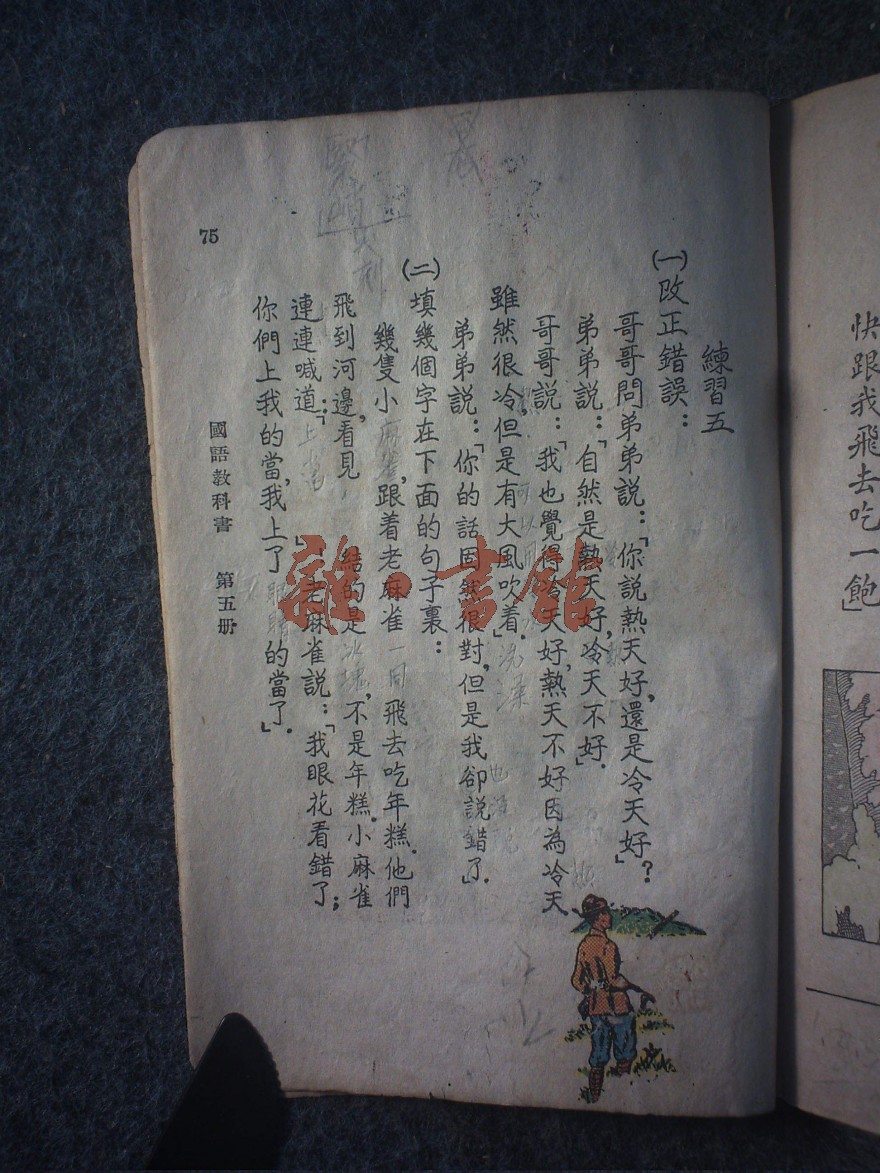 快跟我飛去吃一飽」
練習五
(一)改正錯誤：
哥哥問弟弟說：「你說熱天好，還是冷天好」？
弟弟說：「自然是熱天好，冷天不好．」
哥哥說：「我也覺得冷天好，熱天不好因為冷天
雖然很冷，但是有大風吹着．」
弟弟說：「你的話固然很對，但是我卻說錯了」．
(二)填幾個字在下面的句子裏：
幾隻小麻雀，跟着老麻雀一同飛去吃年糕．他們
飛到河邊，看見 結的是冰塊，不是年糕．小麻雀
連連喊道：「上當 」老麻雀說：「我眼花看錯了；
你們上我的當，我上了眼睛的當了」．
國語教科書 第五册
75
雜·書館